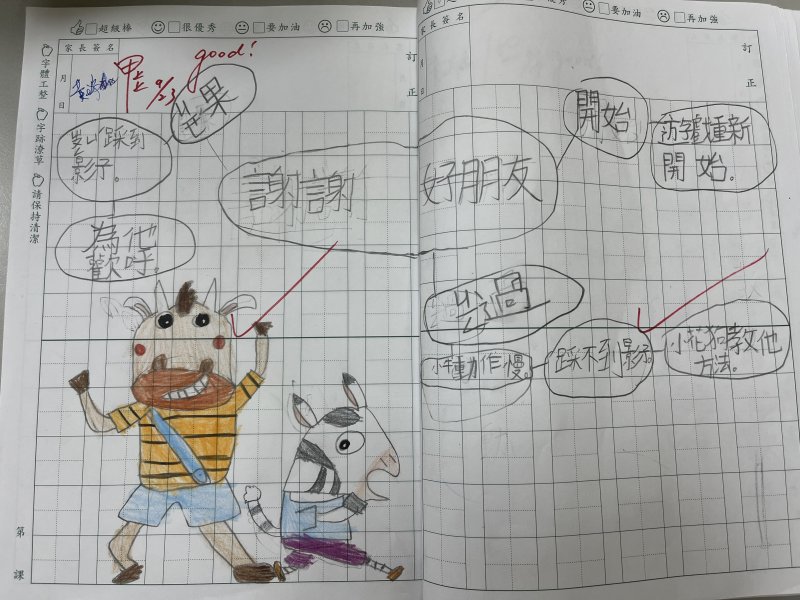 超級棒 很優秀 要加油 再加強
字體工整
字跡潦草
請保持清潔
家長簽名
月
日
訂
正
甲上
9/23
good!
結果
踩到
影子。
為他
歡呼。
謝謝
第
課
級 很優秀 要加油 再加強
家長簽名
月
日
訂
正
好朋友
開始
遊戲重新
開始。
經過
小牛動作慢。
踩不到影子
小花狗教他
方法。